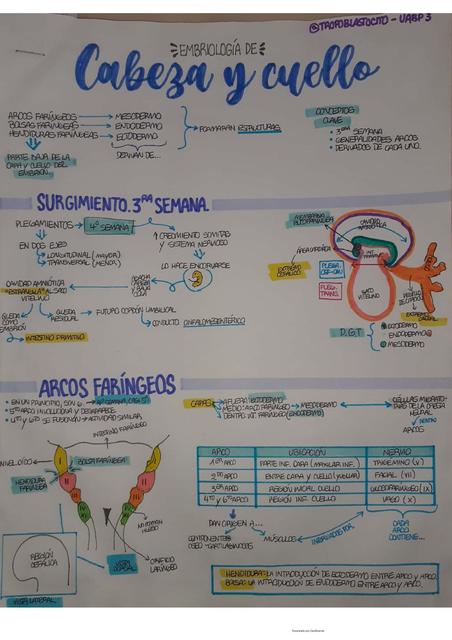 @TROFOBLASTOCITO - UABP 3
EMBRIOLOGÍA DE
Cabeza y cuello
ARCOS FARÍNGEOS → MESODERMO
BOLSAS FARÍNGEAS → ENDODERMO
HENDIDURAS FARÍNGEAS → ECTODERMO
FORMARAN ESTRUCTURAS
DERIVAN DE...
PARTE BAJA DE LA
CARA Y CUELLO DEL
EMBRIÓN
CONCEPTOS
CLAVE
• 3ERA SEMANA
• GENERALIDADES ARCOS
• DERIVADOS DE CADA UNO.
SURGIMIENTO. 3RA SEMANA.
PLEGAMIENTOS → 4° SEMANA
EN DOS EJES
LONGITUDINAL (MAYOR)
TRANSVERSAL (MENOR)
↑ CRECIMIENTO SOMITAS
Y SISTEMA NERVIOSO
LO HACE ENCORVARSE
CAVIDAD AMNIÓTICA
"ESTRANGULA" AL SACO
VITELINO
QUEDA
COMO
EMBRIÓN
QUEDA
RESIDUAL
FUTURO CORDÓN UMBILICAL
CONDUCTO ONFALOMESENTÉRICO
INTESTINO PRIMITIVO
MEMBRANA
BUCOFARÍNGEA
CAVIDAD
AMNIÓTICA
EXTREMO
CEFÁLICO
PLEGA.
TRANS.
SACO
VITELINO
EXTREMO
CAUDAL
D.G.T
ECTODERMO
ENDODERMO
MESODERMO
ARCOS FARÍNGEOS
• EN UN PRINCIPIO, SON 6
• 5TO ARCO INVOLUCIONA Y DESAPARECE
• 4TO Y 6TO SE FUSIONAN → ACTIVIDAD SIMILAR
INTESTINO FARÍNGEO
BOLSA FARÍNGEA
HENDIDURA
FARÍNGEA
I
II
III
IV
ORIFICIO
LARÍNGEO
VISIÓN
DORSAL
REGIÓN
CEFÁLICA
VISTA LATERAL
CAPAS
AFUERA: ECTODERMO
MEDIO: ARCO FARÍNGEO → MESODERMO
DENTRO: INT. FARÍNGEO (ENDODERMO)
CÉLULAS MIGRATO-
RIAS DE LA CRESTA
NEURAL
DENTRO
ARCOS
ARCO UBICACIÓN NERVIO
1ER ARCO PARTE INF. CARA (MAXILAR INF.) TRIGÉMINO (V)
2DO ARCO ENTRE CARA Y CUELLO FACIAL (VII)
3ER ARCO REGIÓN INICIAL CUELLO GLOSOFARÍNGEO (IX)
4TO Y 6TO ARCO REGIÓN INF. CUELLO VAGO (X)
DAN ORIGEN A...
COMPONENTES
OSEO-CARTILAGINOSOS
MÚSCULOS
INERVADOS POR
CADA
ARCO
CONTIENE...
HENDIDURA: LA INTRODUCCIÓN DE ECTODERMO ENTRE ARCO Y ARCO.
BOLSA: LA INTRODUCCIÓN DE ENDODERMO ENTRE ARCO Y ARCO.